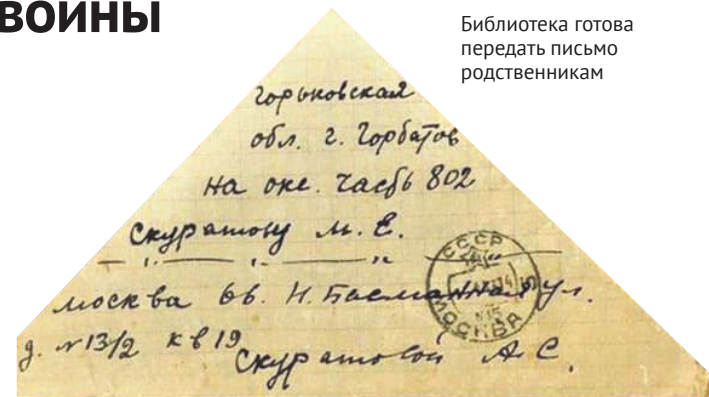 ВОЙНЫ
Библиотека готова
передать письмо
родственникам
Горьковская
обл. г. Горбатов
на оке. часть 802
Скуратову М. Е.
Москва 66. Н. Басманная ул.
д. №13/2 кв 19
Скуратовой А С.
СССР
МОСКВА